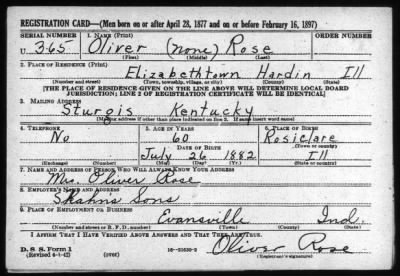 REGISTRATION CARD—(Men born on or after April 28, 1877 and on or before February 16, 1897)
SERIAL NUMBER 1. NAME (Print) ORDER NUMBER
U. 365 Oliver (none) Rose
(First) (Middle) (Last)
2. PLACE OF RESIDENCE (Print)
Elizabethtown Hardin Ill
(Number and street) (Town, township, village, or city) (County) (State)
[THE PLACE OF RESIDENCE GIVEN ON THE LINE ABOVE WILL DETERMINE LOCAL BOARD
JURISDICTION; LINE 2 OF REGISTRATION CERTIFICATE WILL BE IDENTICAL]
3. MAILING ADDRESS
Sturgis Kentucky
[Mailing address if other than place indicated on line 2. If same insert word same]
4. TELEPHONE 5. AGE IN YEARS 6. PLACE OF BIRTH
No 60 Rosiclare
DATE OF BIRTH (Town or county)
July 26 1882 Ill
(Exchange) (Number) (Mo.) (Day) (Yr.) (State or country)
7. NAME AND ADDRESS OF PERSON WHO WILL ALWAYS KNOW YOUR ADDRESS
Mrs. Oliver Rose
8. EMPLOYER'S NAME AND ADDRESS
Sons
9. PLACE OF EMPLOYMENT OR BUSINESS
Evansville Ind.
(Number and street or R. F. D. number) (Town) (County) (State)
I AFFIRM THAT I HAVE VERIFIED ABOVE ANSWERS AND THAT THEY ARE TRUE.
D. S. S. Form 1 Oliver Rose
(Revised 4-1-42) (over) 16—21630-2 (Registrant's signature)